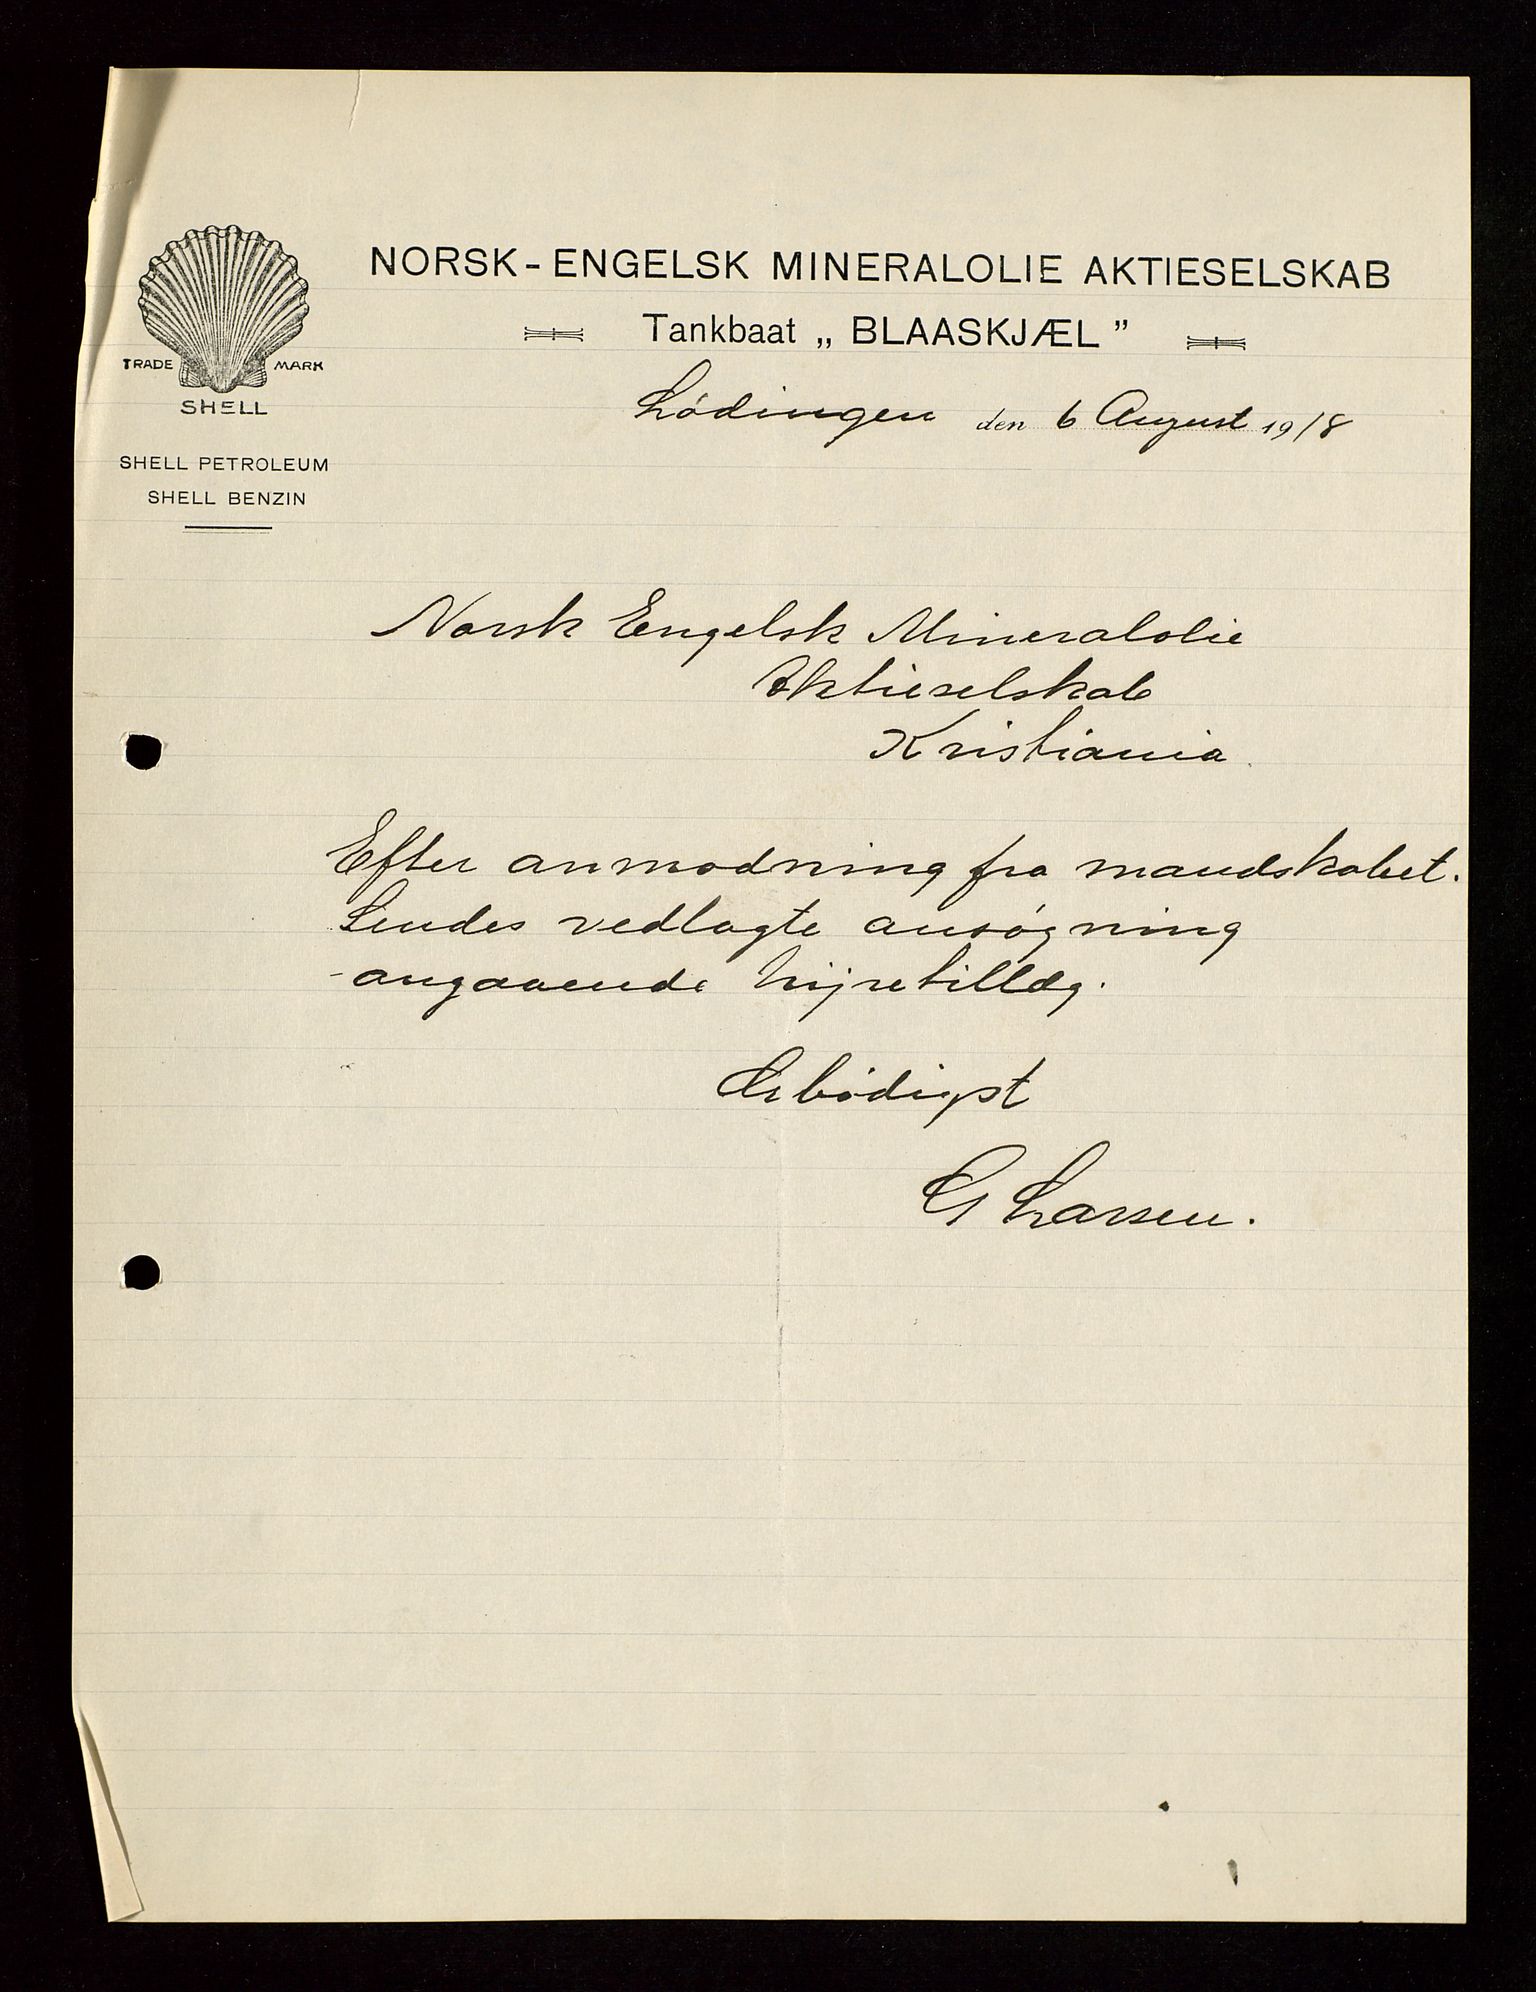 NORSK-ENGELSK MINERALOLIE AKTIESELSKAB
Tankbaat „BLAASKJÆL”
TRADE MARK
SHELL
SHELL PETROLEUM
SHELL BENZIN
Lødingen den 6 August 1918
Norsk Engelsk Mineralolie
Aktieselskab
Kristiania.
Efter anmodning fra mandskabet.
Sendes vedlagte ansøgning
angaaende hyretillæg.
Ærbødigst
G Larsen.